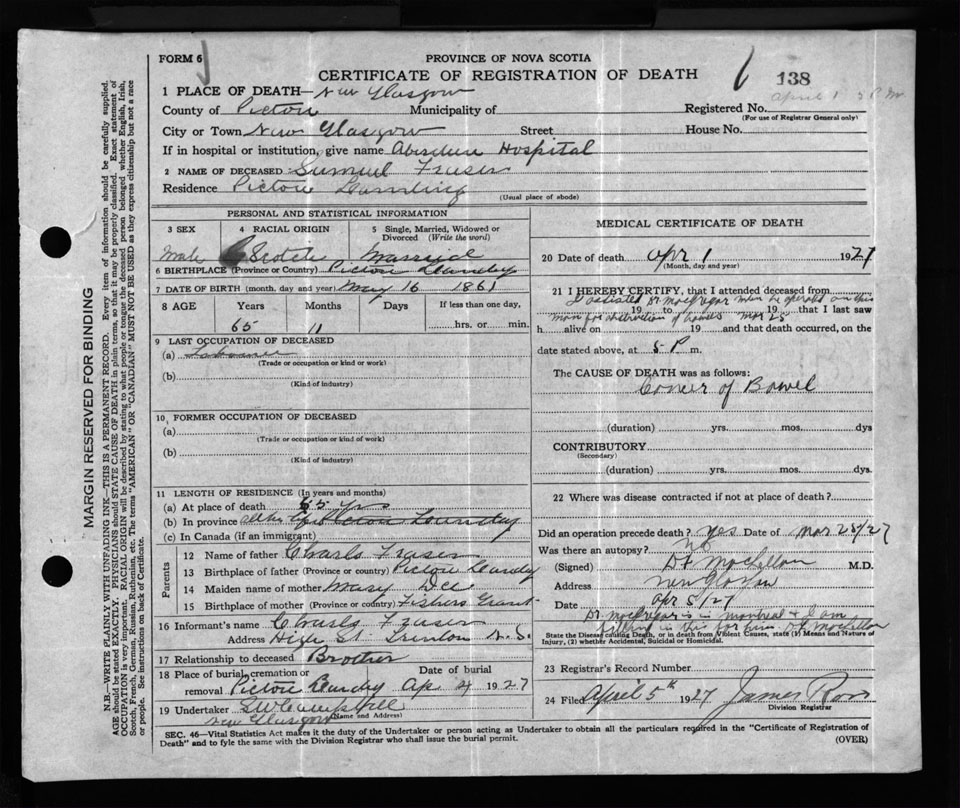 FORM 6
PROVINCE OF NOVA SCOTIA
CERTIFICATE OF REGISTRATION OF DEATH
138
April 1 5 P.M.
1 PLACE OF DEATH— New Glasgow
County of Pictou Municipality of Registered No.
(For use of Registrar General only)
City or Town New Glasgow Street House No.
If in hospital or institution, give name Aberdeen Hospital
2 NAME OF DECEASED Samuel Fraser
Residence Pictou Landing
(Usual place of abode)
PERSONAL AND STATISTICAL INFORMATION
3 SEX 4 RACIAL ORIGIN 5 Single, Married, Widowed or Divorced (Write the word)
Male Scotch Married
6 BIRTHPLACE (Province or Country) Pictou Landing
7 DATE OF BIRTH (month, day and year) May 16 1861
8 AGE Years Months Days If less than one day,
65 11 hrs. or min.
9 LAST OCCUPATION OF DECEASED
(a)
(Trade or occupation or kind of work)
(b)
(Kind of industry)
10 FORMER OCCUPATION OF DECEASED
(a)
(Trade or occupation or kind of work)
(b)
(Kind of industry)
11 LENGTH OF RESIDENCE (In years and months)
(a) At place of death 65 yrs
(b) In province Pictou Landing
(c) In Canada (if an immigrant)
Parents
12 Name of father Charls Fraser
13 Birthplace of father (Province or country) Pictou Landing
14 Maiden name of mother Mary
15 Birthplace of mother (Province or country) Fishers Grant
16 Informant's name Charls Fraser
Address High St. Trenton N.S.
17 Relationship to deceased Brother
18 Place of burial, cremation or removal Pictou Landing Date of burial Ap 4 1927
19 Undertaker
New Glasgow (Name and Address)
MEDICAL CERTIFICATE OF DEATH
20 Date of death Apr 1 1927
(Month, day and year)
21 I HEREBY CERTIFY, that I attended deceased from
I assisted Dr MacGregor when he operated on this
19 to 19 that I last saw
man for obstruction of bowels Mar 25
h alive on 19 and that death occurred, on the
date stated above, at 5 P m.
The CAUSE OF DEATH was as follows:
Cancer of Bowel
(duration) yrs. mos. dys
CONTRIBUTORY
(Secondary)
(duration) yrs. mos. dys.
22 Where was disease contracted if not at place of death?
Did an operation precede death? Yes Date of Mar 25/27
Was there an autopsy? No
(Signed) M.D.
Address New Glasgow
Date Apr 5/27
Dr MacGregor is in Montreal & I am
filling in this for him.
State the Disease causing Death, or in death from Violent Causes, state (1) Means and Nature of Injury, (2) whether Accidental, Suicidal or Homicidal.
23 Registrar's Record Number
24 Filed April 5th 1927 James Ross
Division Registrar
SEC. 46—Vital Statistics Act makes it the duty of the Undertaker or person acting as Undertaker to obtain all the particulars required in the "Certificate of Registration of
Death" and to fyle the same with the Division Registrar who shall issue the burial permit.
(OVER)
MARGIN RESERVED FOR BINDING
N.B.—WRITE PLAINLY WITH UNFADING INK—THIS IS A PERMANENT RECORD. Every item of information should be carefully supplied.
AGE should be stated EXACTLY. PHYSICIANS should STATE CAUSE OF DEATH in plain terms, so that it may be properly classified. Exact statement of
OCCUPATION is very important. RACIAL ORIGIN will be described by stating to what people or tongue the deceased person belonged whether English, Irish,
Scotch, French, German, Russian, Ruthenian, etc. The terms "AMERICAN" or "CANADIAN" MUST NOT BE USED as they express citizenship but not a race
or people. See instructions on back of Certificate.